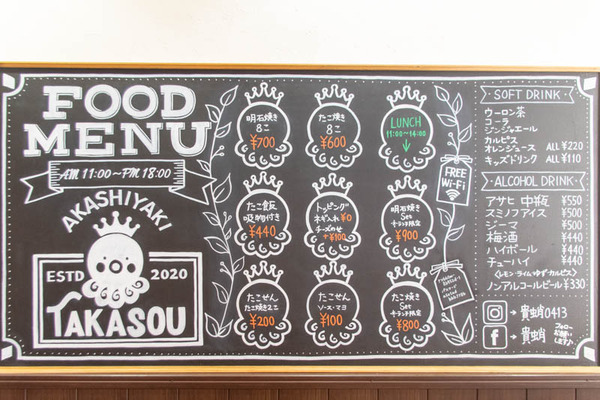 FOOD
MENU
AM 11:00~PM 18:00
AKASHIYAKI
ESTD 2020
TAKASOU
明石焼き
8こ
¥700
たこ焼き
8こ
¥600
LUNCH
11:00~14:00
↓
たこ飯
吸物付き
¥440
トッピング
ネギ入れ ¥0
チーズのせ
+¥100
明石焼き
Set
¥900
たこせん
たこ焼き2こ
¥200
たこせん
ソース・マヨ
¥100
たこ焼き
Set
¥800
FREE
Wi-Fi
SOFT DRINK
ウーロン茶
コーラ
ジンジャエール
カルピス
オレンジュース ALL ¥220
キッズドリンク ALL ¥110
ALCOHOL DRINK
アサヒ 中瓶 ¥550
スミノフアイス ¥500
ジーマ ¥500
梅酒 ¥440
ハイボール ¥440
チューハイ ¥440
(レモン・ライム・ゆず・カルピス)
ノンアルコールビール ¥330
→ 貴蛸0413
f → 貴蛸
フォロー
お願い
します♪